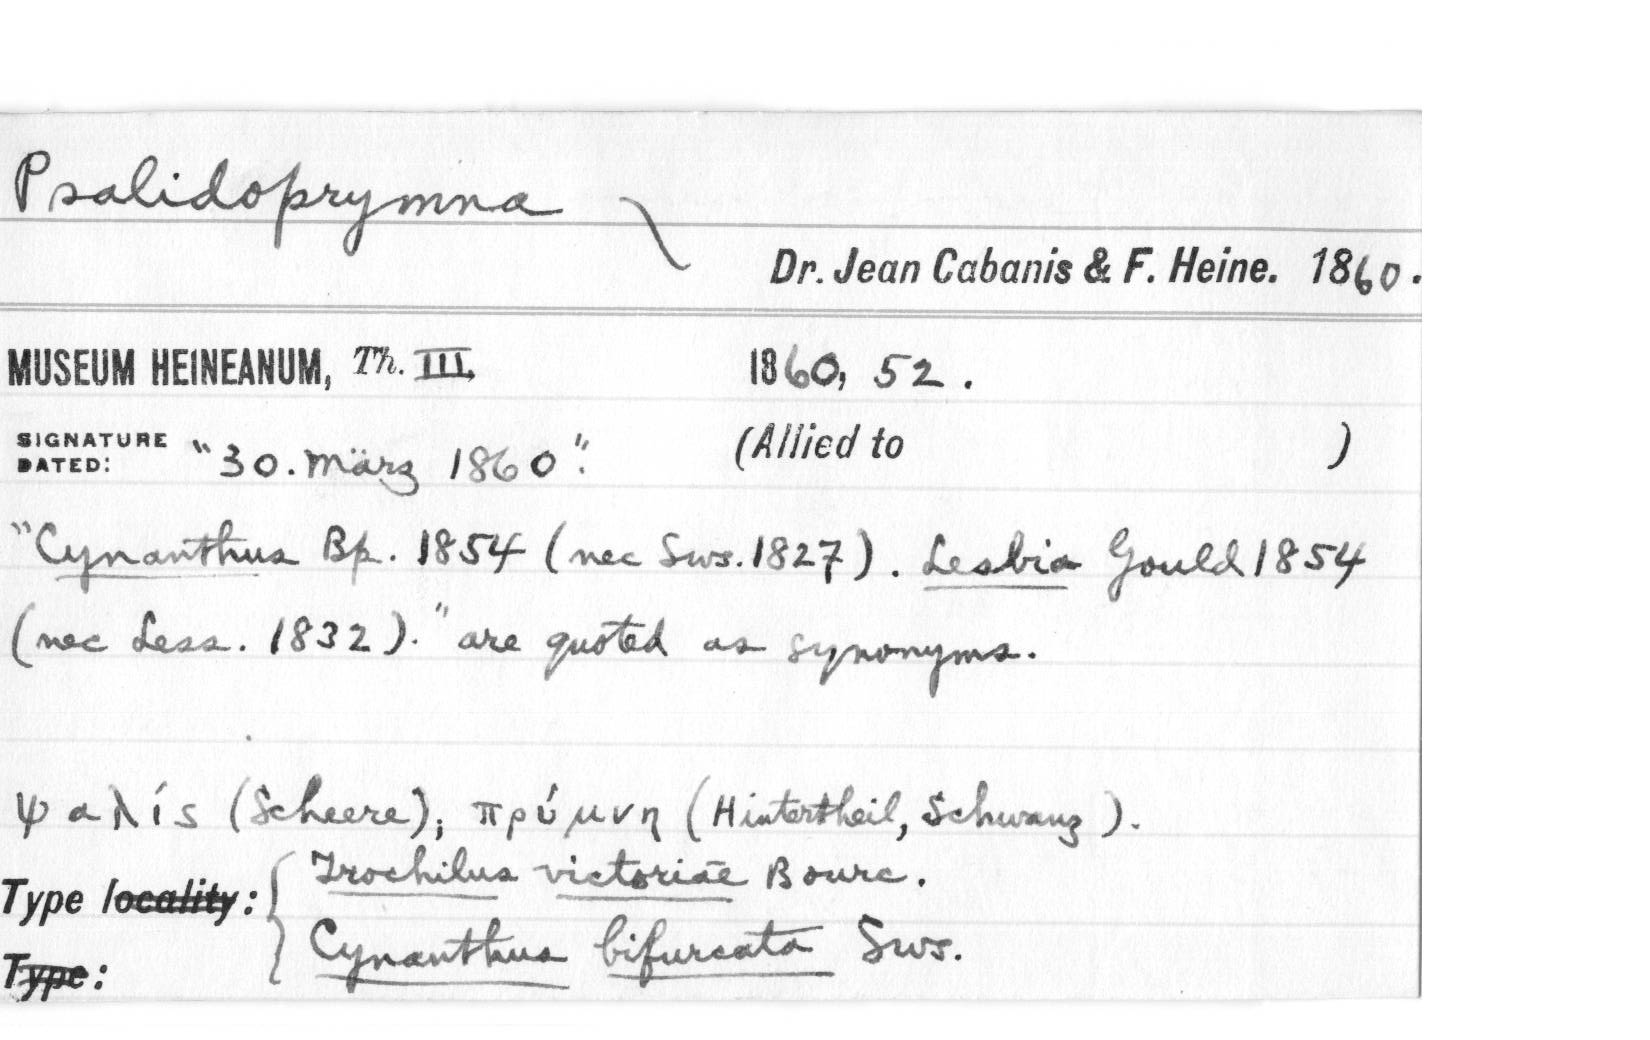 Psalidoprymna
Dr. Jean Cabanis & F. Heine. 1860.
MUSEUM HEINEANUM, Th. III, 1860, 52.
SIGNATURE DATED: "30. März 1860". (Allied to )
"Cynanthus Bp. 1854 (nec Sws. 1827). Lesbia Gould 1854
(nec Less. 1832)." are quoted as synonyms.
ψαλίς (Scheere); πρύμνη (Hintertheil, Schwanz).
Type locality: Trochilus victoriae Bourc.
Type: Cynanthus bifurcata Sws.